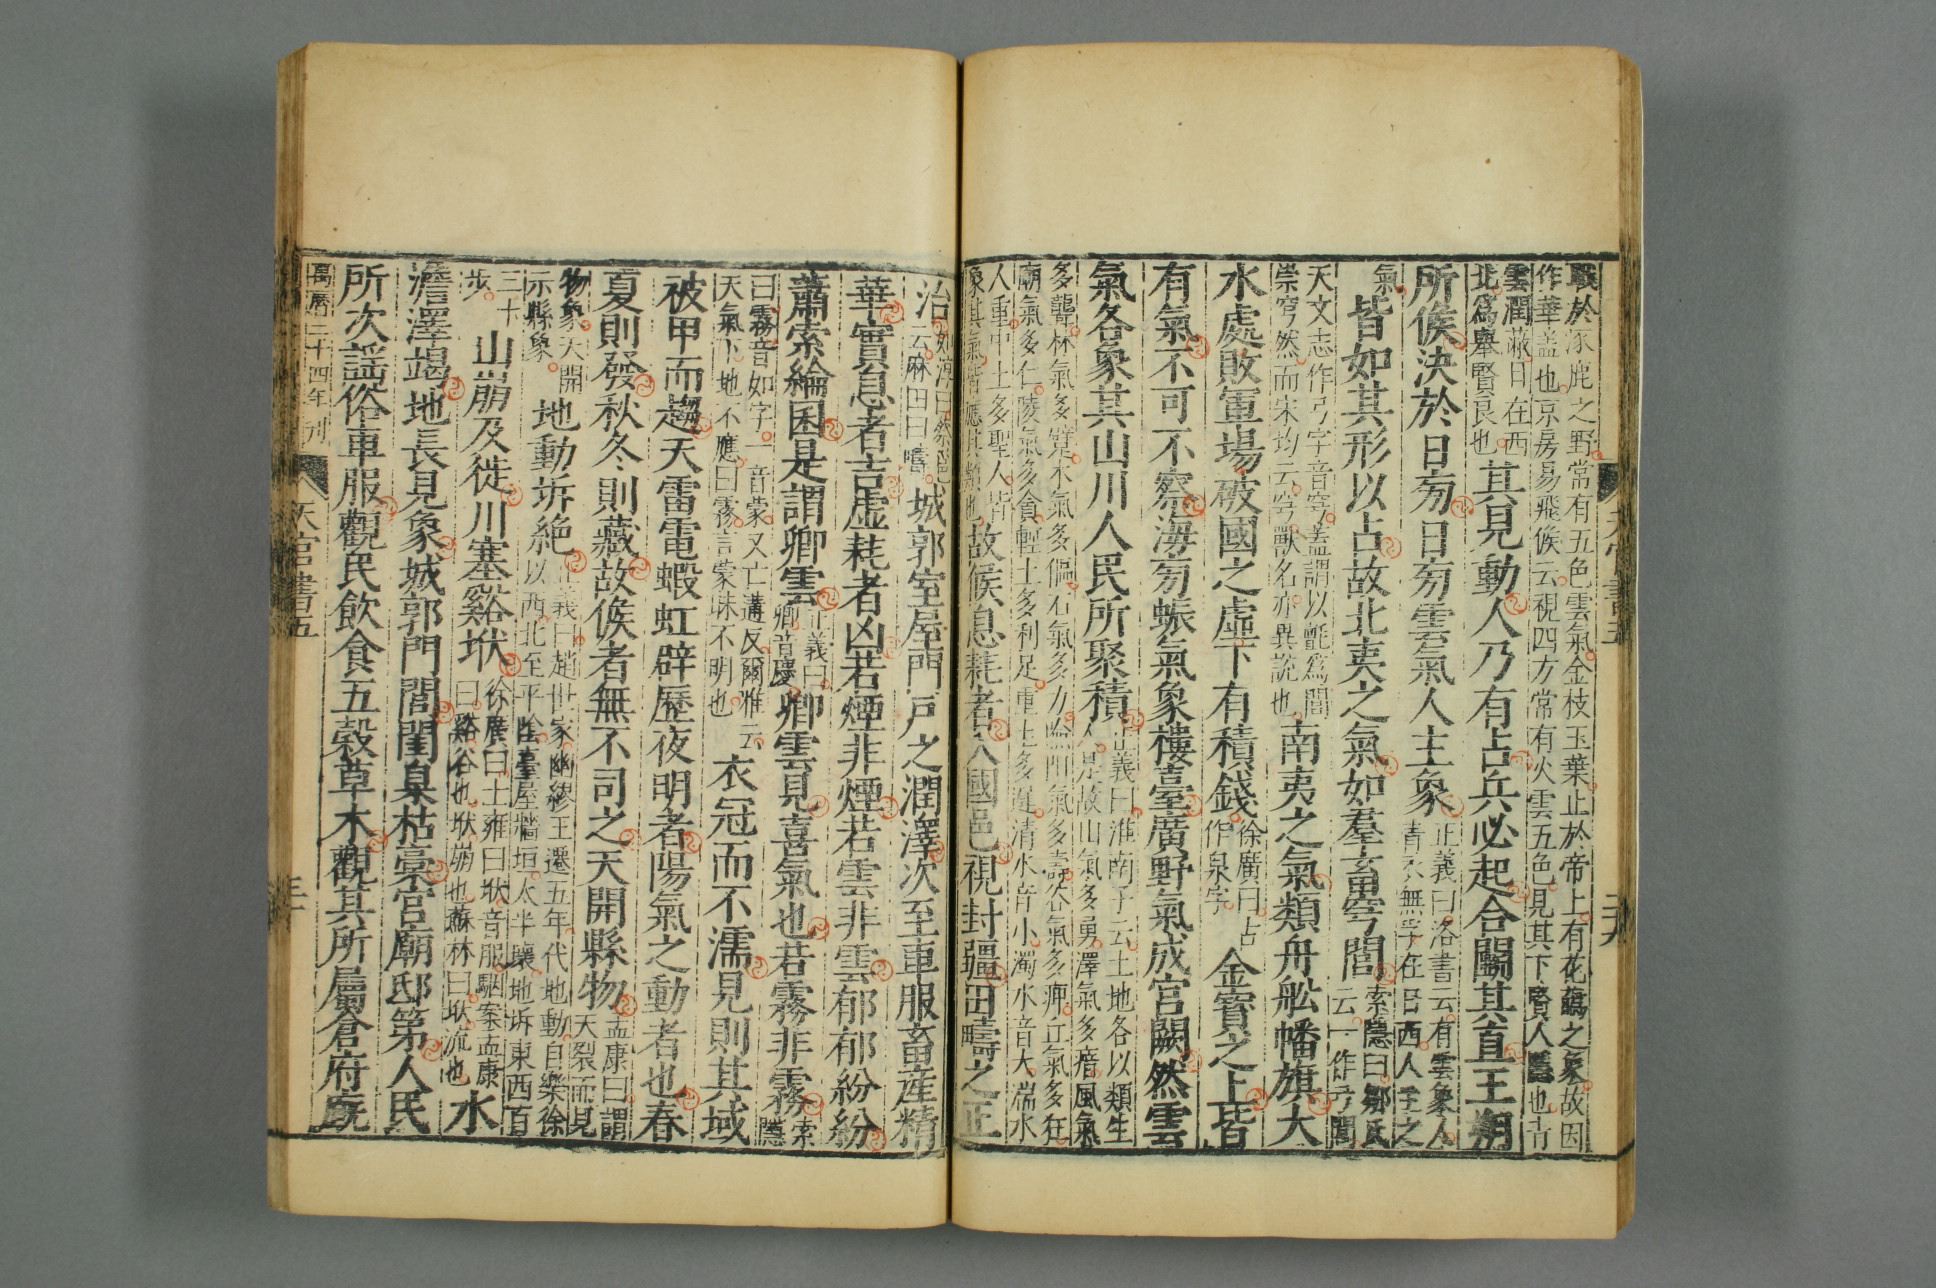 戰於涿鹿之野常有五色雲氣金枝玉葉止於帝上有花蘤之象故因
作華蓋也京房易飛候云視四方常有大雲五色見其下賢人隱也青
雲潤蔽日在西北爲舉賢良也其見動人乃有占兵必起合鬭其直王朔
所候決於日旁日旁雲氣人主象正義曰洛書云有雲象人青衣無手在日西人主之
氣皆如其形以占故北夷之氣如羣畜穹閭索隱曰鄒氏云一作弓閭
天文志作弓字音穹蓋謂以氈爲閭崇穹然而宋均云穹獸名亦異說也南夷之氣類舟舩幡旗大
水處敗軍場破國之虛下有積錢徐廣曰古作泉字金寶之上皆
有氣不可不察海旁蜄氣象樓臺廣野氣成宮闕然雲
氣各象其山川人民所聚積正義曰淮南子云土地各以類生人是故山氣多勇澤氣多瘖風氣
多聾林氣多躄木氣多傴石氣多力險阻氣多壽谷氣多痹丘氣多狂
廟氣多仁陵氣多貪輕土多利足重土多遲清水音小濁水音大湍水
人重中土多聖人皆象其氣皆應其類也故候息耗者入國邑視封疆田疇之正
治如淳曰蔡邕云麻田曰疇城郭室屋門戶之潤澤次至車服畜產精
華實息者吉虛耗者凶若煙非煙若雲非雲郁郁紛紛
蕭索綸囷是謂卿雲正義曰卿音慶卿雲見喜氣也若霧非霧索隱
曰霧音如字一音蒙又亡遘反爾雅云天氣下地不應曰霧言蒙昧不明也衣冠而不濡見則其域
被甲而趨天雷電蝦虹辟歷夜明者陽氣之動者也春
夏則發秋冬則藏故候者無不司之天開縣物孟康曰謂天裂而見
物象天開示縣象地動坼絕正義曰趙世家幽繆王遷五年代地動自樂徐以西北至平陰臺屋牆垣太半壞地坼東西百
三十步山崩及徙川塞谿垘徐廣曰土雍曰垘音服駰案孟康曰谿谷也垘崩也蘇林曰垘流也水
澹澤竭地長見象城郭門閭閨臬枯槀宮廟邸第人民
所次謡俗車服觀民飲食五穀草木觀其所屬倉府廐
萬曆二十四年刊
天官書五
三十
天官書五
二十九